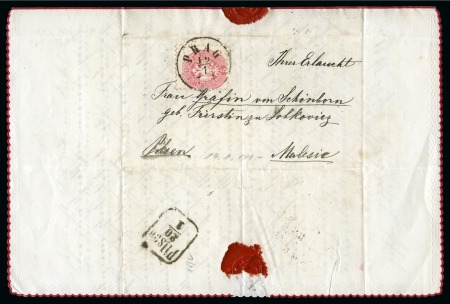 PRAG
19
1
Ihrer Erlaucht
Frau Gräfin von Schönborn
geb. Fürstin zu Lobkovicz
Pilsen
Malesic
PILSEN
20
1